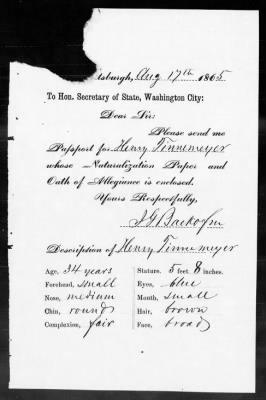 tsburgh, Aug 17th 1865
To Hon. Secretary of State, Washington City:
Dear Sir:
Please send me
Passport for Henry Tinnemeyer
whose Naturalization Paper and
Oath of Allegiance is enclosed.
Yours Respectfully,
J. G. Backofen
Description of Henry Tinnemeyer
Age, 34 years Stature. 5 feet 8 inches.
Forehead, small Eyes, blue
Nose, medium Mouth, small
Chin, round Hair, brown
Complexion, fair Face, broad